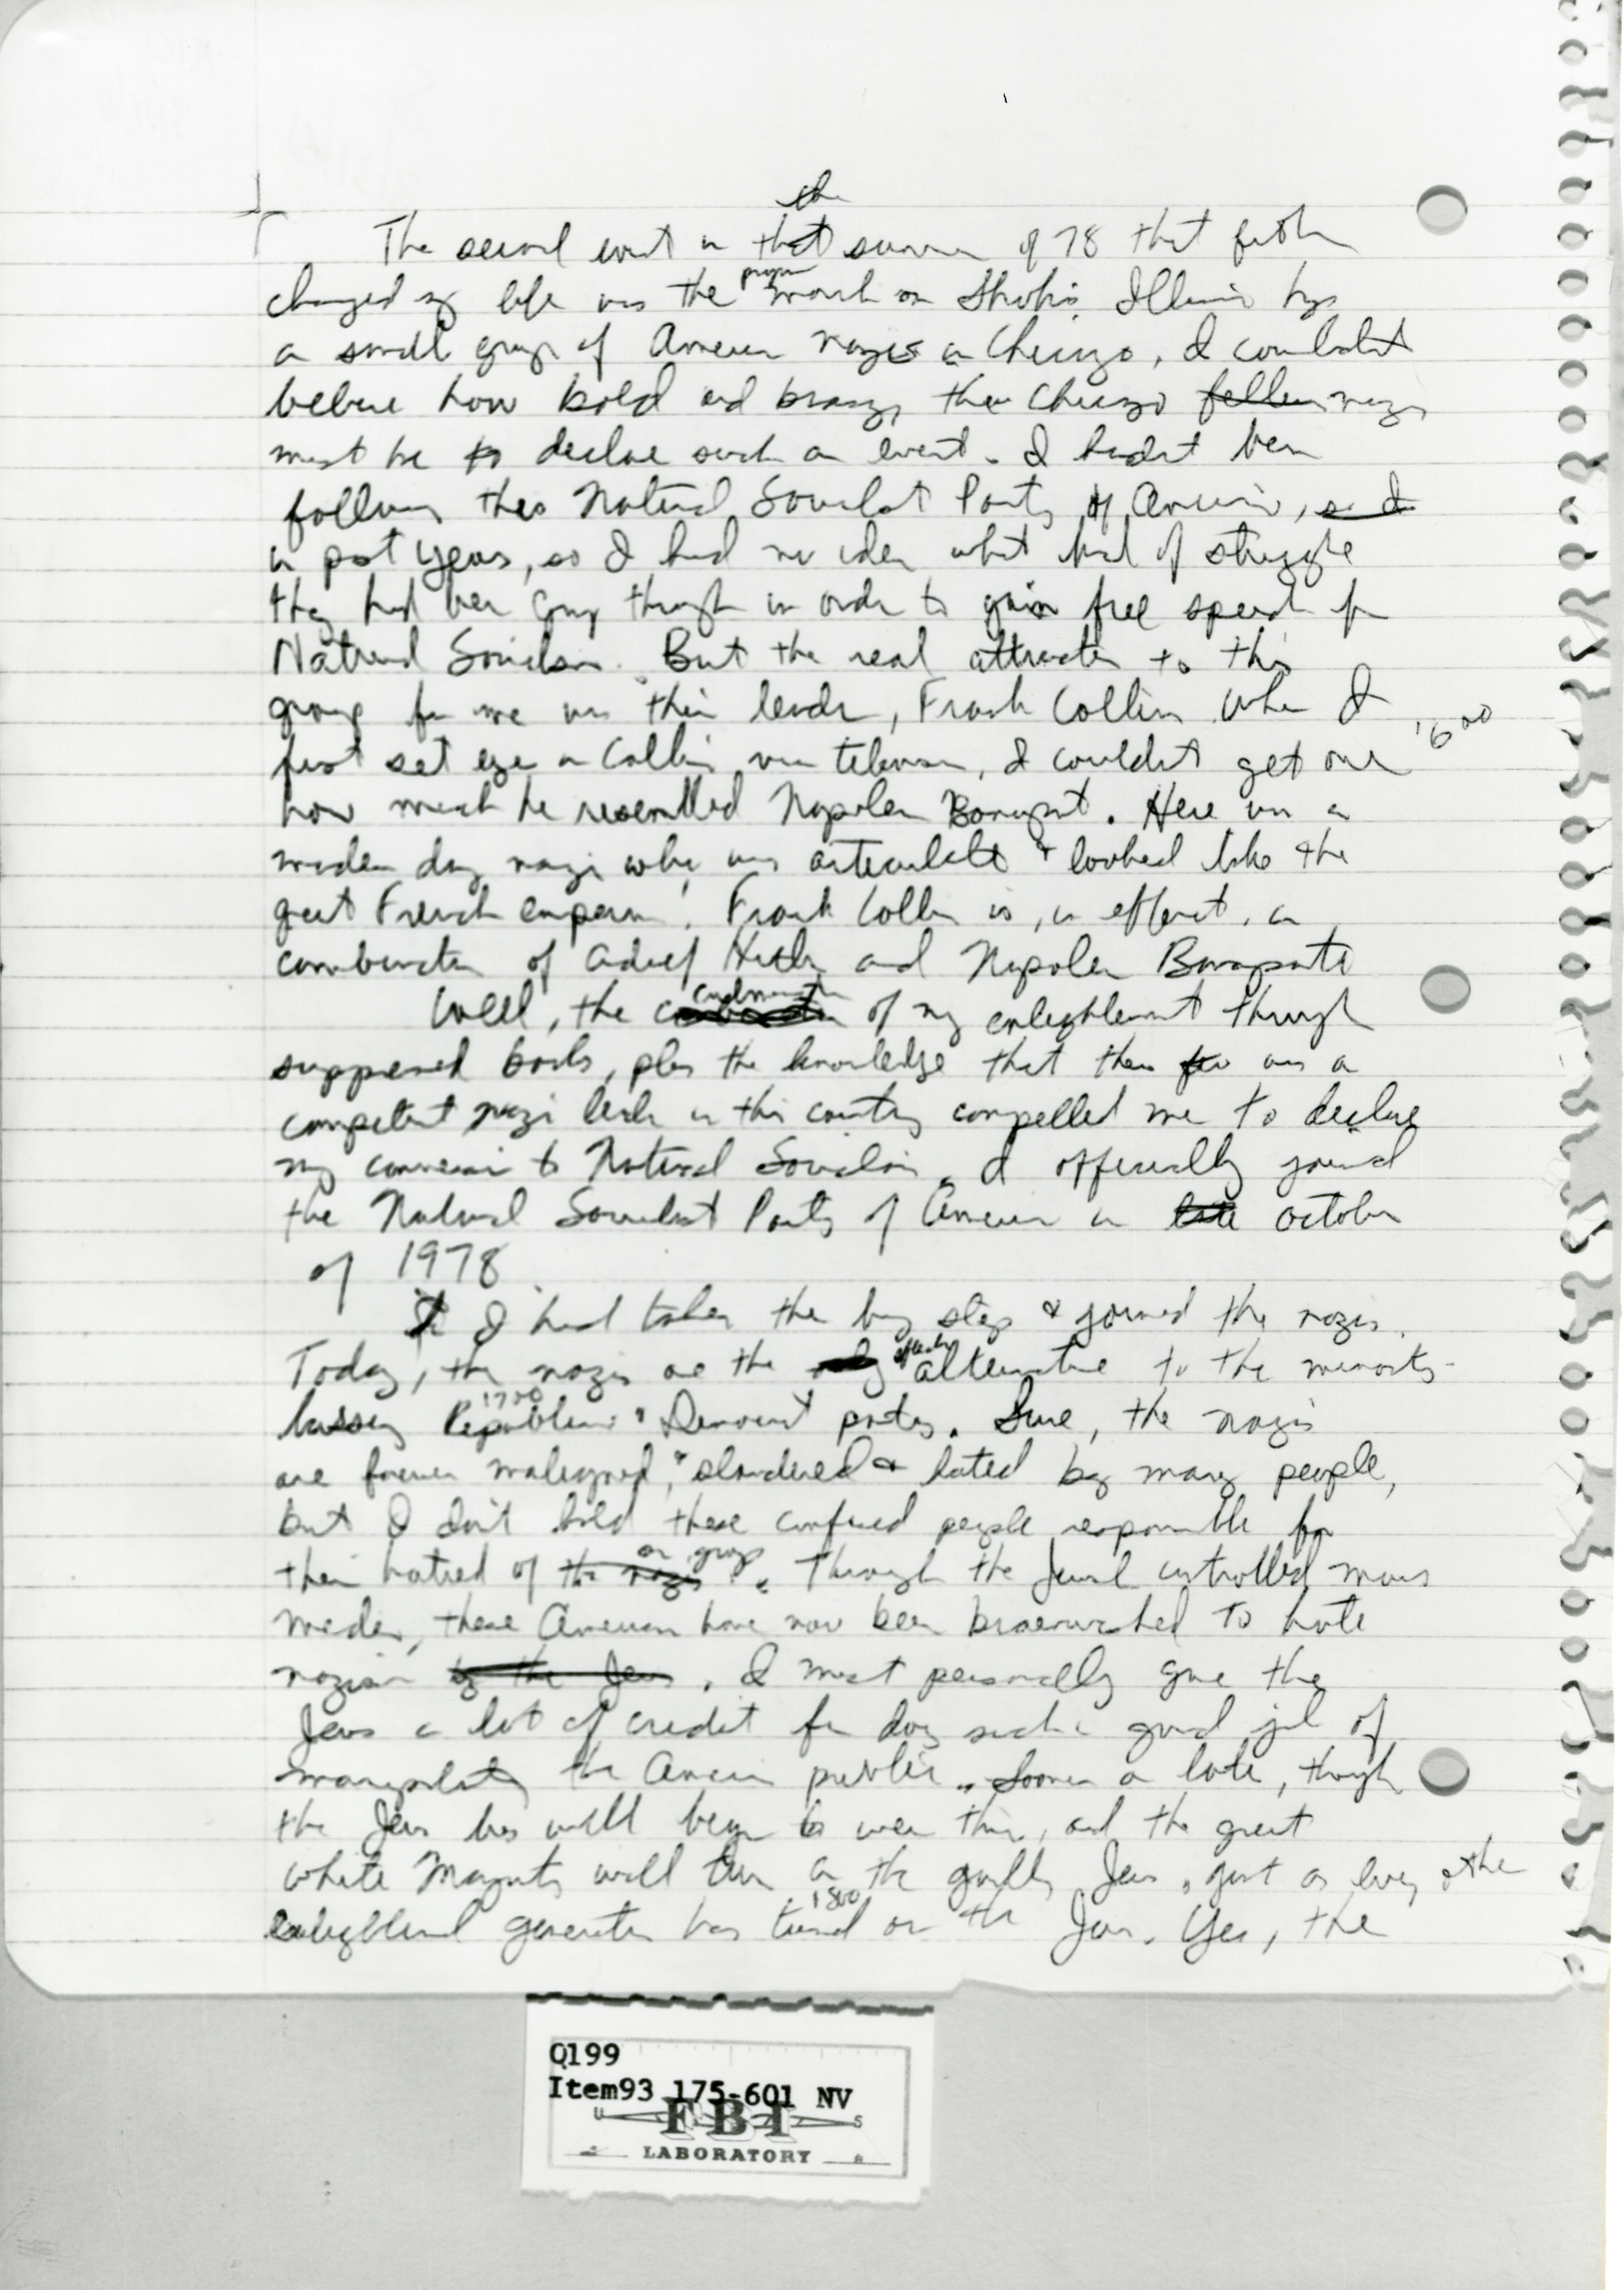 the
The second event in that summer of 78 that further
changed my life was the proposed march on Skokie, Illinois by
a small group of American nazis in Chicago. I couldn't
believe how bold and brassy these Chicago fellow nazis
must be to declare such an event. I hadn't been
following this National Socialist Party of America, so I
in past years, so I had no idea what kind of struggle
they had been going through in order to gain free speech for
National Socialism. But the real attraction to this
group for me was their leader, Frank Collin. When I
1600
first set eyes on Collin via television, I couldn't get over
how much he resembled Napolean Bonaparte. Here was a
modern day nazi who was articulate & looked like the
great French emperor! Frank Collin is, in effect, a
combination of Adolf Hitler and Napolean Bonaparte
Well, the culmination of my enlightenment through
suppressed books, plus the knowledge that there was a
competent nazi leader in this country compelled me to declare
my conversion to National Socialism. I officially joined
the National Socialist Party of America in late October
of 1978
I had taken the big step & joined the nazis.
Today, the nazis are the only effective alternative to the minority-
1700
kissing Republican & Democrat parties. Sure, the nazis
are forever maligned, slandered & hated by many people,
but I don't hold these confused people responsible for
their hatred of the nazis our group. Through the Jewish controlled mass
media, these Americans have now been brainwashed to hate
nazism by the Jews. I must personally give the
Jews a lot of credit for doing such a good job of
manipulating the American public. Sooner or later, though
the Jews lies will begin to wear thin, and the great
white Majority will turn on the guilty Jews, just as every other
1800
enlightened generation has turned on the Jews. Yes, the
Q199
Item93 175-601 NV
U S
FBI
LABORATORY